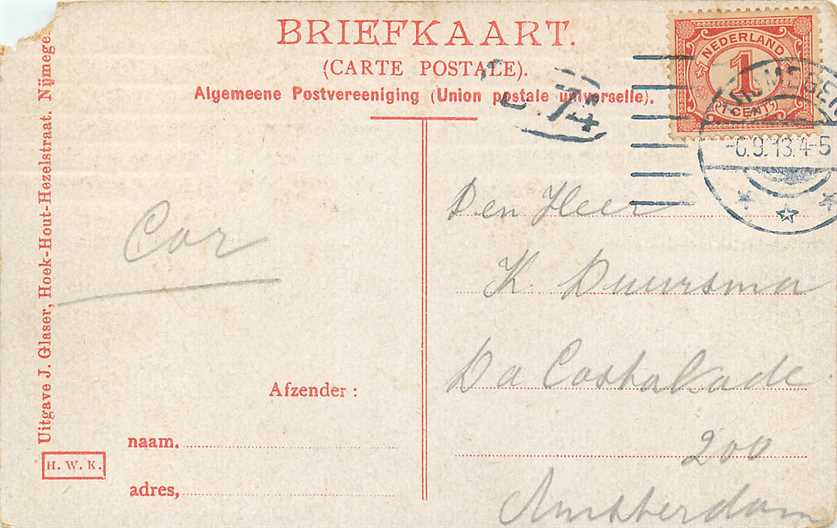 BRIEFKAART.
(CARTE POSTALE).
Algemeene Postvereeniging (Union postale universelle).
NEDERLAND
1
1 CENT
-6.9.13.4-5
Uitgave J. Glaser, Hoek-Hout-Hezelstraat. Nijmege
Cor
Den Heer
K. Duursma
Da Costakade
200
Amsterdam
Afzender:
naam.
adres,
H. W. K.